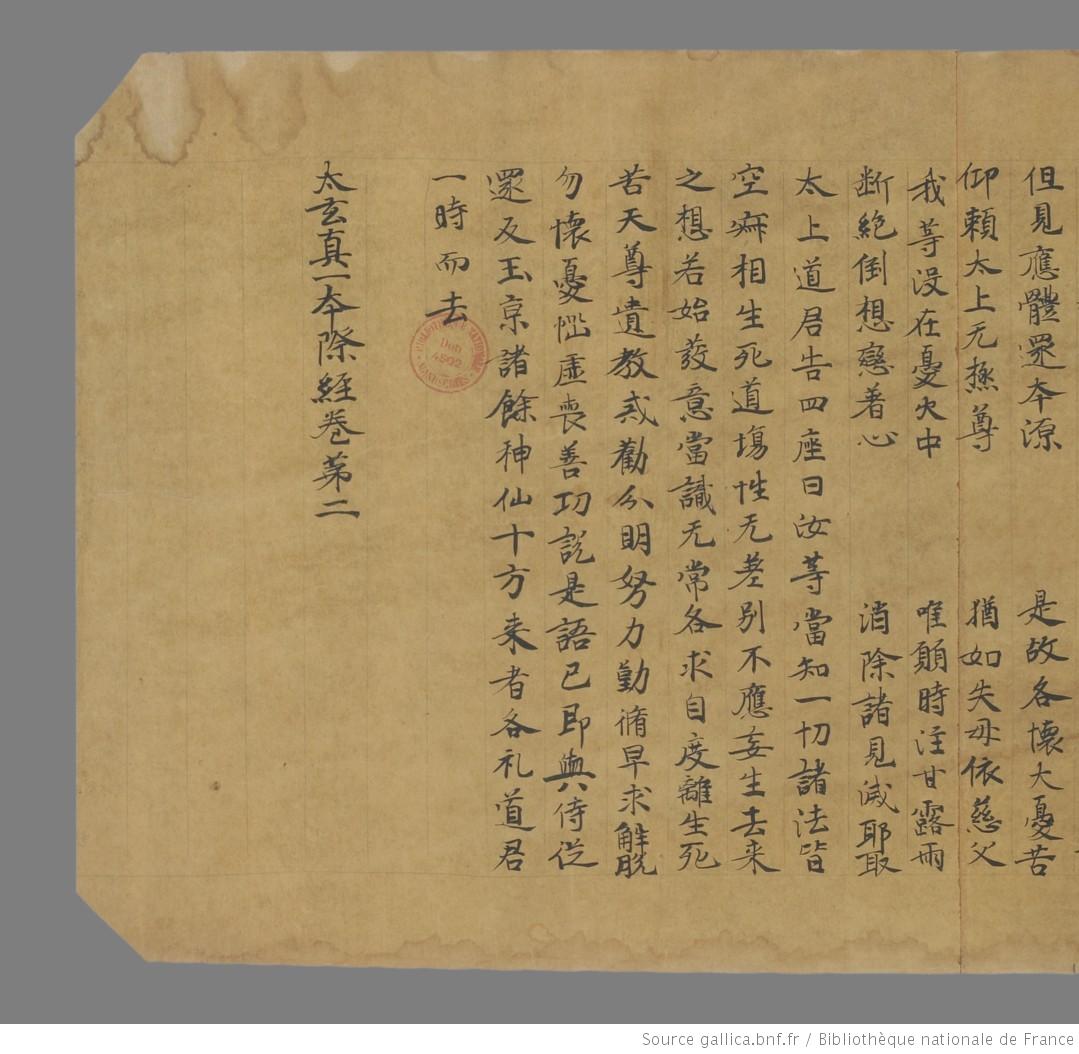 但見應體還本源　是故各懷大憂苦
仰賴太上无極尊　猶如失母依慈父
我等没在憂火中　唯願時注甘露雨
断絶倒想戀著心　消除諸見滅耶取
太上道君告四座曰汝等當知一切諸法皆
空寐相生死道塲性无差别不應妄生去来
之想若始發意當識无常各求自度離生死
苦天尊遺教或勸分明努力勤脩早求解脱
勿懷憂惱虚喪善功説是語已即與侍従
還反玉京諸餘神仙十方来者各礼道君
一時而去
太玄真一本際經卷第二
BIBLIOTHÈQUE NATIONALE
Don
4502
MANUSCRITS
Source gallica.bnf.fr / Bibliothèque nationale de France